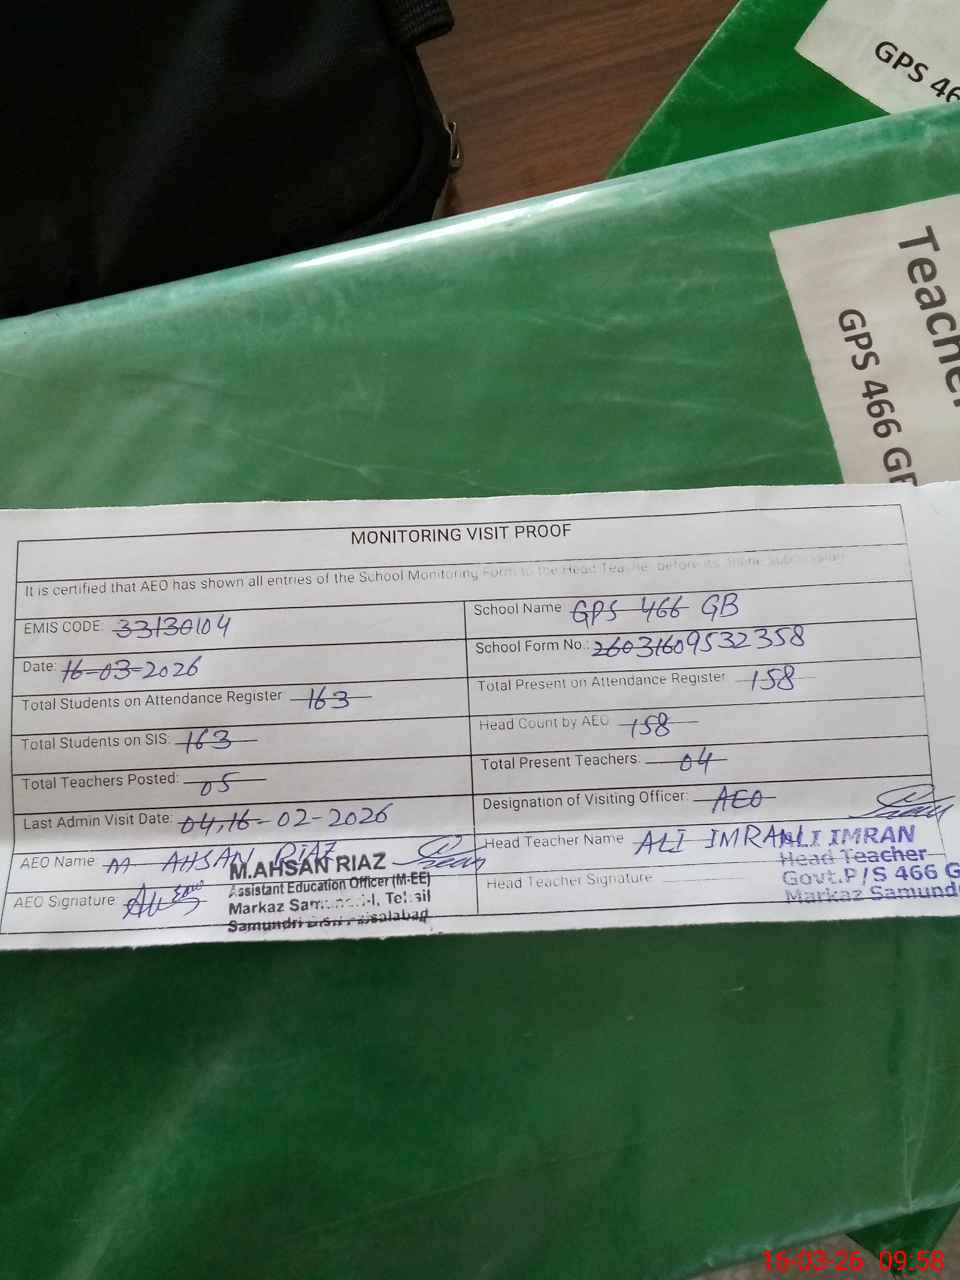 GPS 46
Teacher
GPS 466 GB
MONITORING VISIT PROOF
It is certified that AEO has shown all entries of the School Monitoring Form to the Head Teacher before its online submission
EMIS CODE: 33130104
School Name GPS 466 GB
Date: 16-03-2026
School Form No.: 2603160953 2358
Total Students on Attendance Register 163
Total Present on Attendance Register 158
Total Students on SIS: 163
Head Count by AEO 158
Total Teachers Posted: 05
Total Present Teachers: 04
Last Admin Visit Date: 04,16-02-2026
Designation of Visiting Officer: AEO
AEO Name M AHSAN RIAZ
Head Teacher Name ALI IMRAN
AEO Signature
Head Teacher Signature
M.AHSAN RIAZ
Assistant Education Officer (M-EE)
Markaz Samundri-I, Tehsil
Samundri Distt Faisalabad
ALI IMRAN
Head Teacher
Govt.P/S 466 G
Markaz Samund
16-03-26 09:58